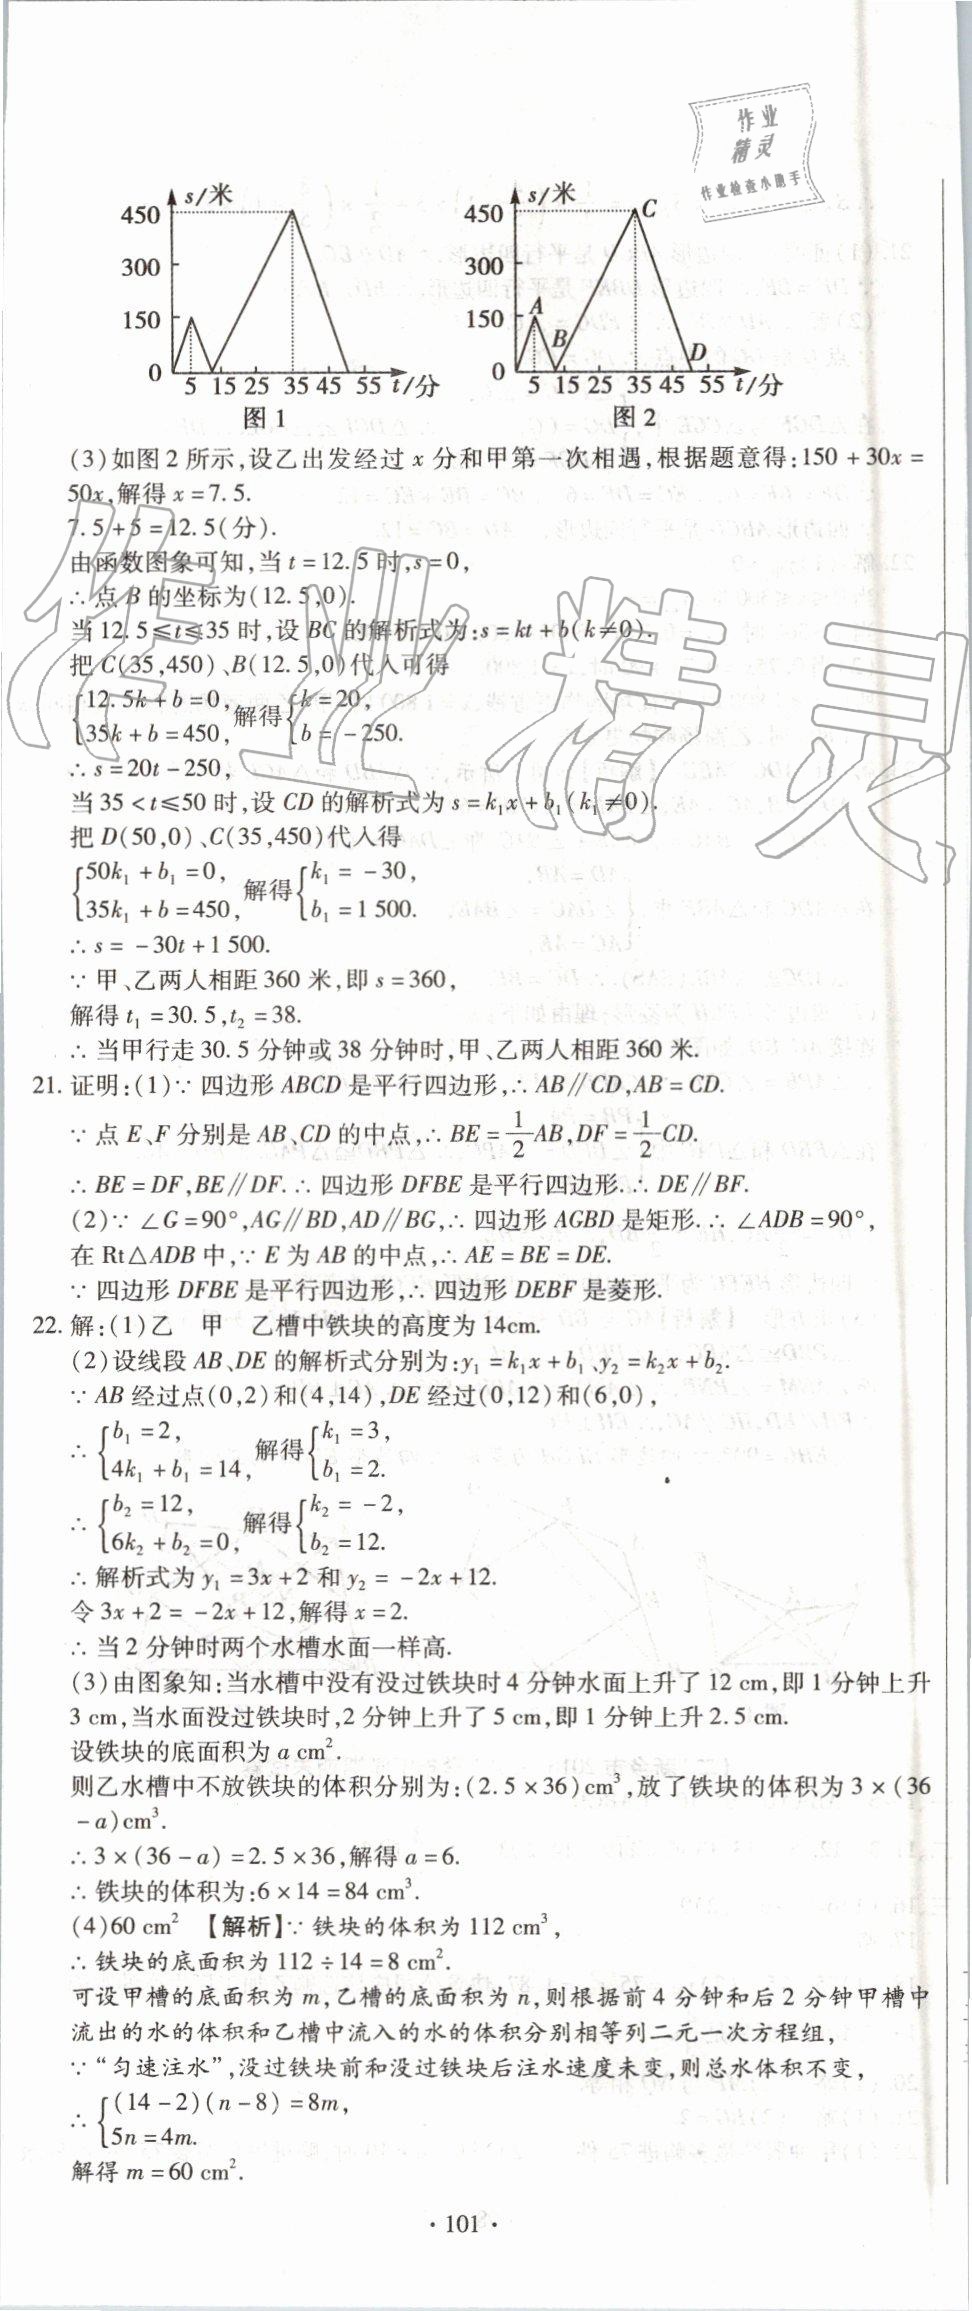 作业
精灵
作业检查小助手
s/米
450
300
150
0
5 15 25 35 45 55 t/分
图1
s/米
450
300
150
0
A B C D
5 15 25 35 45 55 t/分
图2
(3)如图2所示,设乙出发经过x分和甲第一次相遇,根据题意得:150+30x=
50x,解得x=7.5.
7.5+5=12.5(分).
由函数图象可知,当t=12.5时,s=0,
∴点B的坐标为(12.5,0).
当12.5≤t≤35时,设BC的解析式为:s=kt+b(k≠0).
把C(35,450)、B(12.5,0)代入可得
{12.5k+b=0, 35k+b=450, 解得{k=20, b=-250.
∴s=20t-250,
当35<t≤50时,设CD的解析式为s=k₁x+b₁(k₁≠0).
把D(50,0)、C(35,450)代入得
{50k₁+b₁=0, 35k₁+b=450, 解得{k₁=-30, b₁=1 500.
∴s=-30t+1 500.
∵甲、乙两人相距360米,即s=360,
解得t₁=30.5,t₂=38.
∴当甲行走30.5分钟或38分钟时,甲、乙两人相距360米.
21.证明:(1)∵四边形ABCD是平行四边形,∴AB∥CD,AB=CD.
∵点E、F分别是AB、CD的中点,∴BE=1/2AB,DF=1/2CD.
∴BE=DF,BE∥DF.∴四边形DFBE是平行四边形.∴DE∥BF.
(2)∵∠G=90°,AG∥BD,AD∥BG,∴四边形AGBD是矩形.∴∠ADB=90°,
在Rt△ADB中,∵E为AB的中点,∴AE=BE=DE.
∵四边形DFBE是平行四边形,∴四边形DEBF是菱形.
22.解:(1)乙 甲 乙槽中铁块的高度为14cm.
(2)设线段AB、DE的解析式分别为:y₁=k₁x+b₁、y₂=k₂x+b₂.
∵AB经过点(0,2)和(4,14),DE经过(0,12)和(6,0),
∴{b₁=2, 4k₁+b₁=14, 解得{k₁=3, b₁=2.
∴{b₂=12, 6k₂+b₂=0, 解得{k₂=-2, b₂=12.
∴解析式为y₁=3x+2和y₂=-2x+12.
令3x+2=-2x+12,解得x=2.
∴当2分钟时两个水槽水面一样高.
(3)由图象知:当水槽中没有没过铁块时4分钟水面上升了12 cm,即1分钟上升
3 cm,当水面没过铁块时,2分钟上升了5 cm,即1分钟上升2.5 cm.
设铁块的底面积为a cm².
则乙水槽中不放铁块的体积分别为:(2.5×36)cm³,放了铁块的体积为3×(36
-a)cm³.
∴3×(36-a)=2.5×36,解得a=6.
∴铁块的体积为:6×14=84 cm³.
(4)60 cm² 【解析】∵铁块的体积为112 cm³,
∴铁块的底面积为112÷14=8 cm².
可设甲槽的底面积为m,乙槽的底面积为n,则根据前4分钟和后2分钟甲槽中
流出的水的体积和乙槽中流入的水的体积分别相等列二元一次方程组,
∵“匀速注水”,没过铁块前和没过铁块后注水速度未变,则总水体积不变,
∴{(14-2)(n-8)=8m, 5n=4m.
解得m=60 cm².
·101·
作业精灵